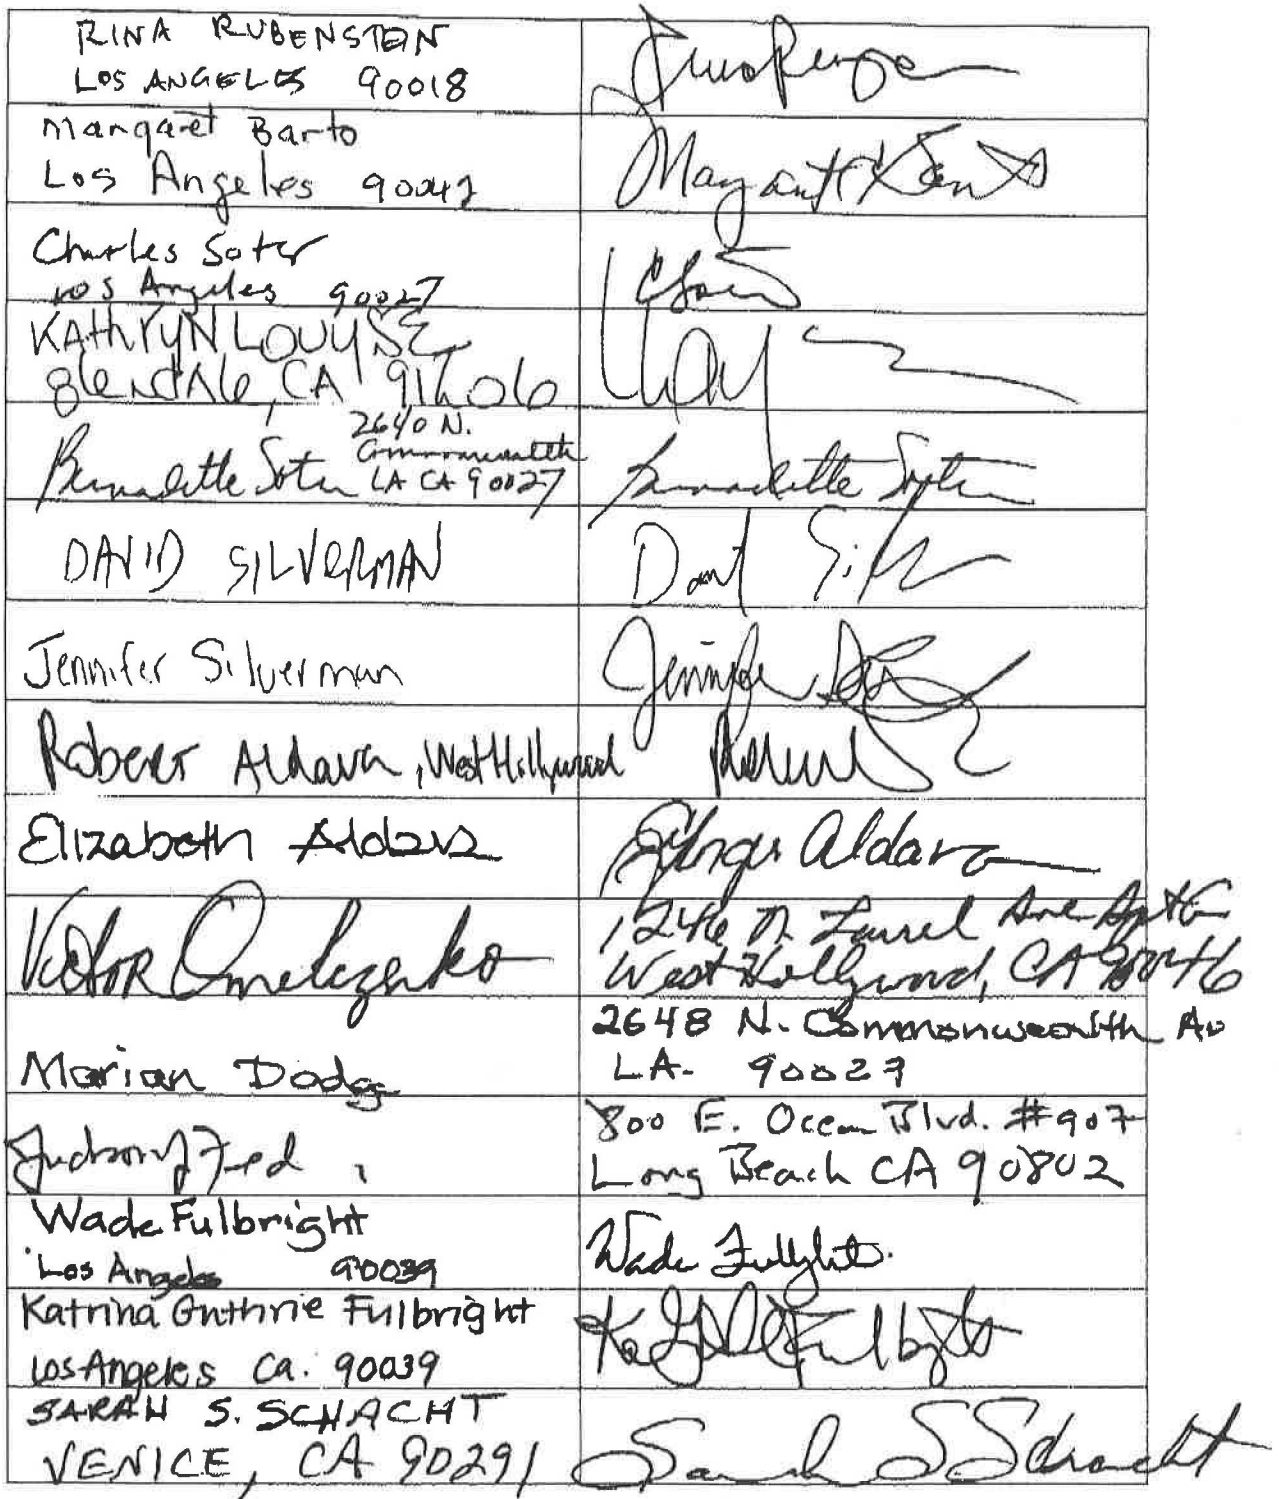 RINA RUBENSTEIN
LOS ANGELES 90018
Margaret Barto
Los Angeles 90042
Charles Soter
Los Angeles 90027
KAthryN LOUYSE
Glendale, CA
2640 N.
Commonwealth
Bernadette Soter LA CA 90027
Bernadette Soter
DAVID SILVERMAN
Jennifer Silverman
Jennifer
Robert Aldava, West Hollywood
Elizabeth Aldava
Aldava
Victor Omelczenko
1246 N. Laurel Ave Apt G
West Hollywood, CA 90046
Marian Dodge
2648 N. Commonwealth Av
LA. 90027
800 E. Ocean Blvd. #907
Long Beach CA 90802
Wade Fulbright
Los Angeles 90039
Wade Fulbright
Katrina Guthrie Fulbright
Los Angeles Ca. 90039
Fulbright
SARAH S. SCHACHT
VENICE, CA 90291
Sarah S Schacht